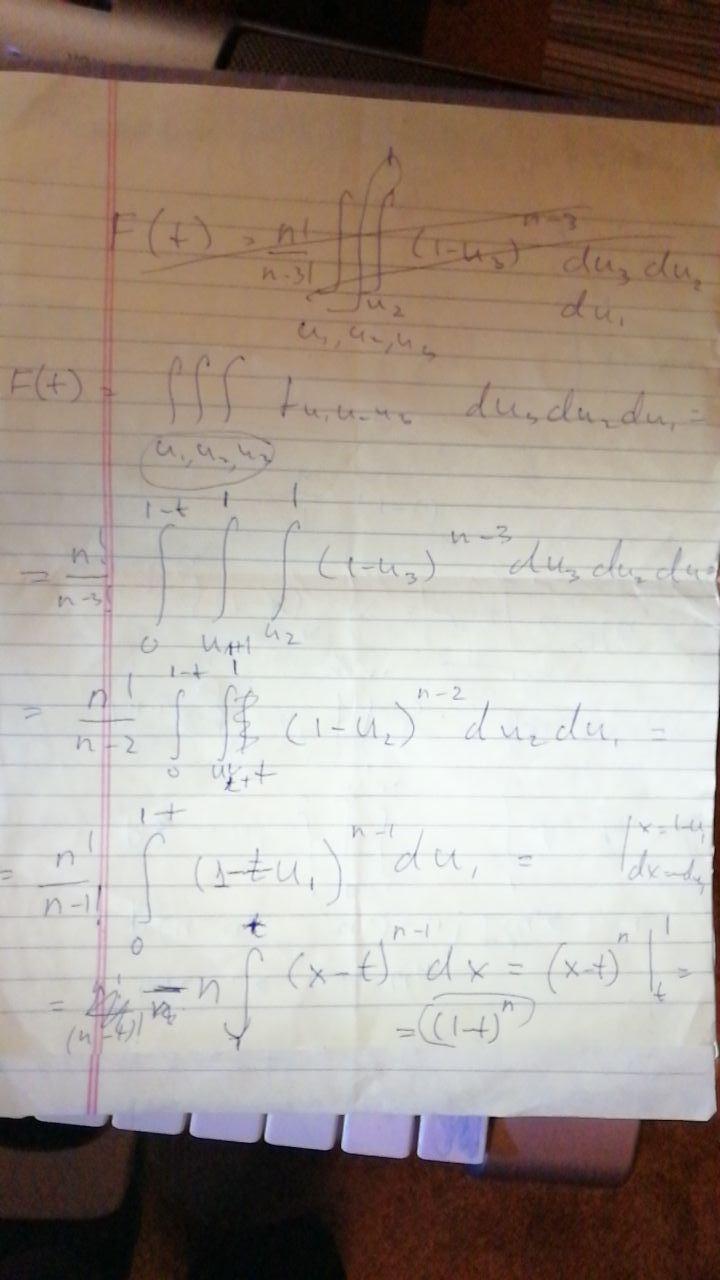 F(t) = n!/n-3! ∫∫∫ (1-u₃)ⁿ⁻³ du₃ du₂
u₂ du₁
u₁, u₂, u₃
F(t) = ∫∫∫ f u₁ u₂ u₃ du₃ du₂ du₁ =
u₁, u₂, u₃
= n!/n-3! ∫₀¹⁻ᵗ ∫¹ ∫_{u₂}¹ (1-u₃)ⁿ⁻³ du₃ du₂ du₁
= n!/n-2 ∫₀¹⁻ᵗ ∫¹ (1-u₂)ⁿ⁻² du₂ du₁ =
= n!/n-1! ∫₀¹⁻ᵗ (1-t-u₁)ⁿ⁻¹ du₁ = | x=1-u₁
dx=-du₁
= n ∫ (x-t)ⁿ⁻¹ dx = (x-t)ⁿ |ₜ¹ =
= (1-t)ⁿ